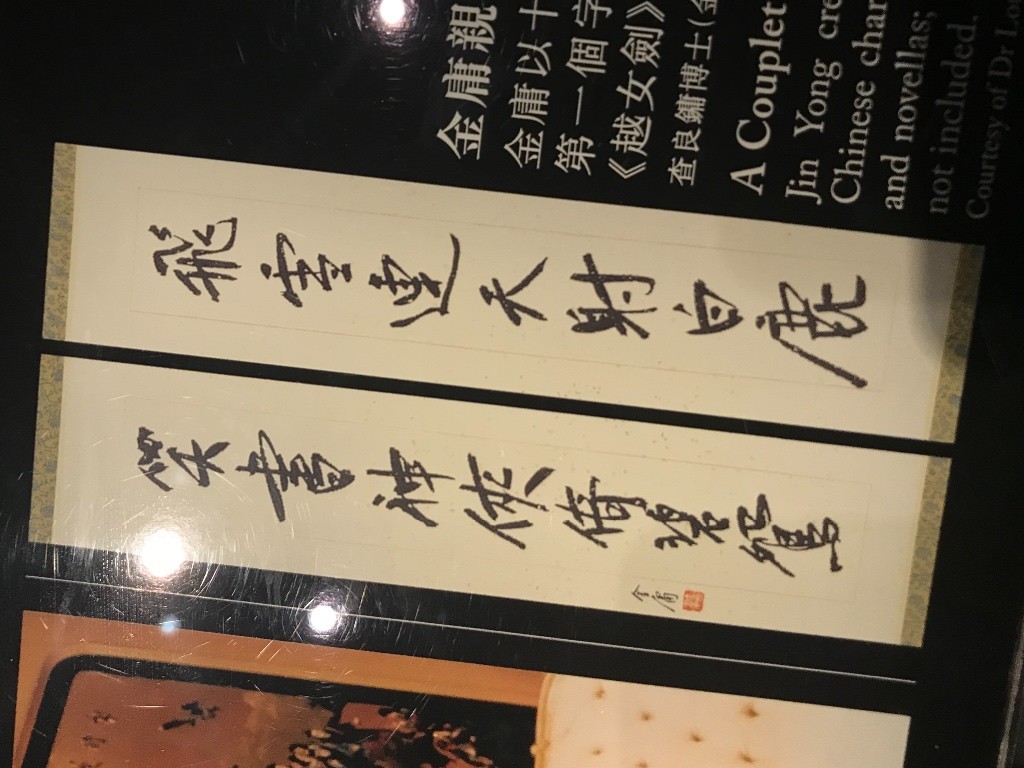 飛雪連天射白鹿
笑書神俠倚碧鴛
金庸
金庸親
金庸以十
第一個字
《越女劍》
查良鏞博士(金
A Couplet
Jin Yong cre
Chinese char
and novellas;
not included.
Courtesy of Dr Lo